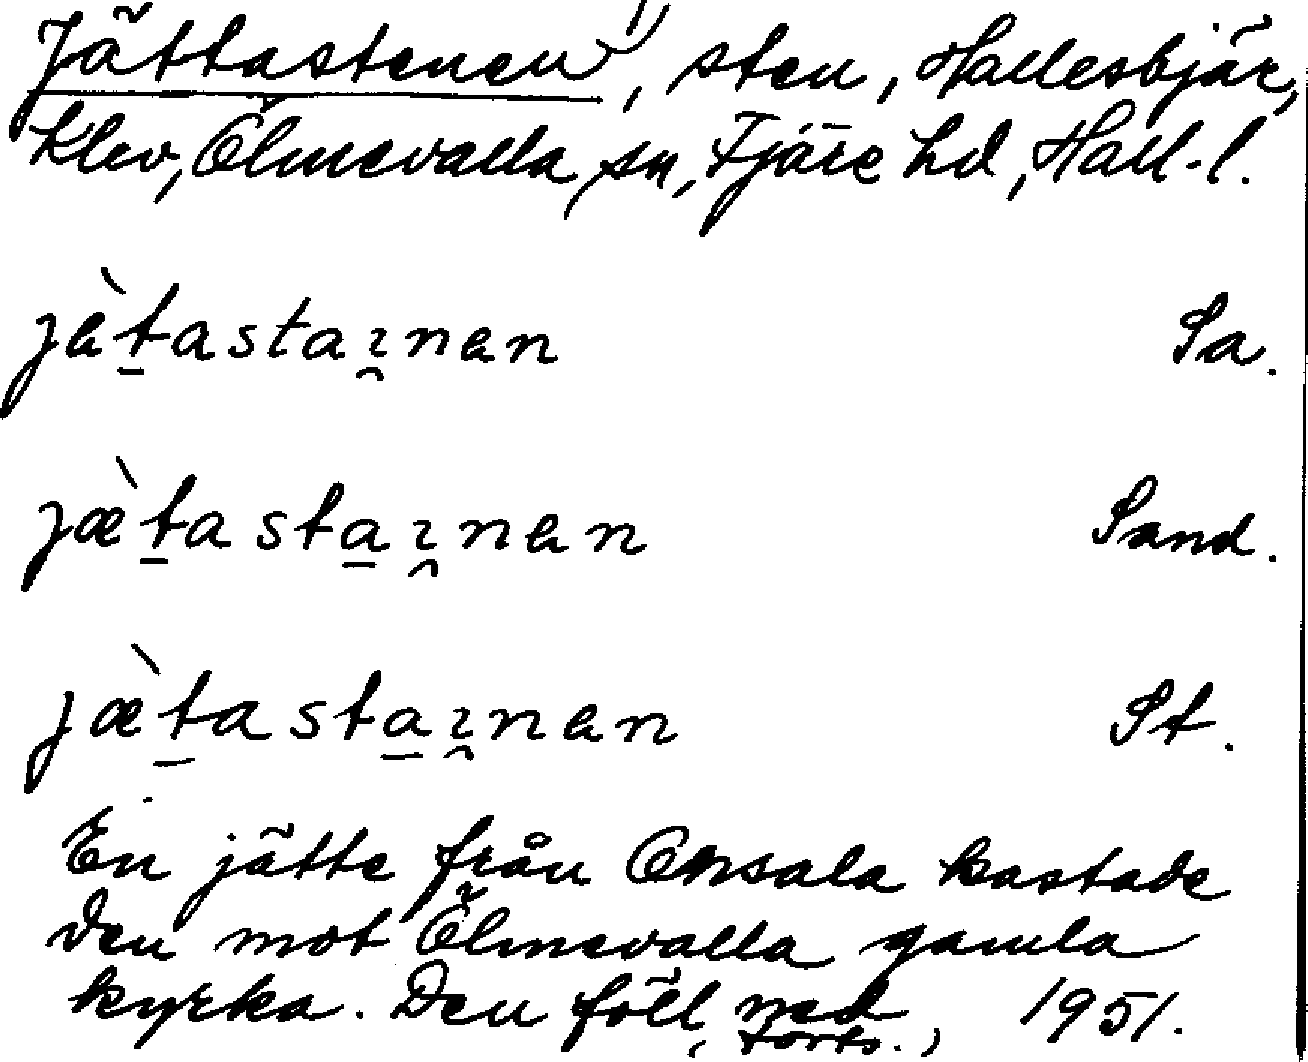 Jättastenen 1), sten, Hallesbjär,
Klev, Ölmevalla sn, Fjäre hd, Hall. l.
jèt̠astaı̯nen Sa.
jæ̀t̠asta̠ı̯nen Sand.
jæ̀t̠asta̠ı̯nen St.
En jätte från Onsala kastade
den mot Ölmevalla gamla
kyrka. Den föll ned 1951.
(forts.)